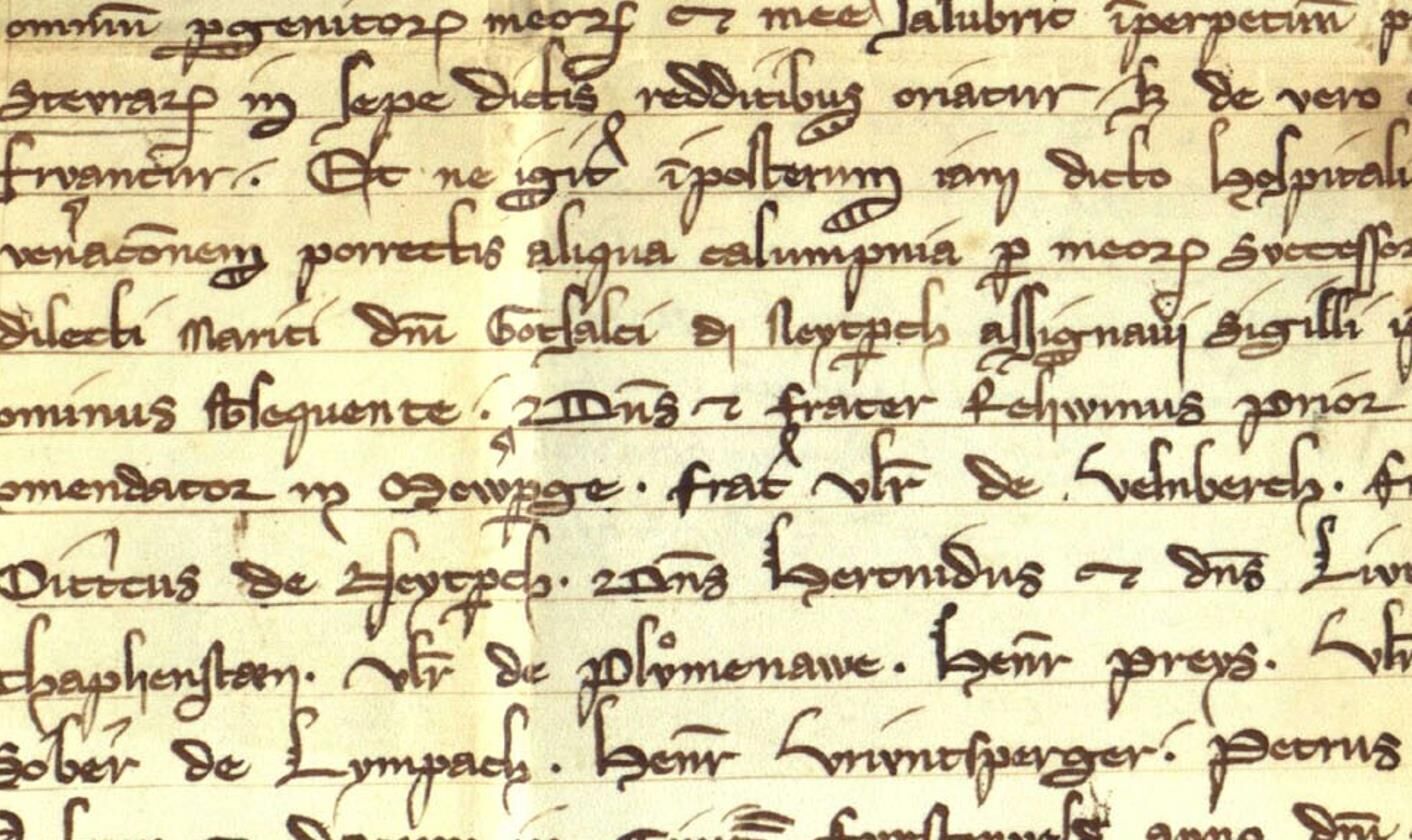 omniū ꝓgenitoꝝ meoꝝ et mee salubrit̄ īperpetuū p
Stevraꝝ in sepe dictis redditibus oriatur ꝫ de vero
frvantur. Et ne igit᷑ īposterum iam dicto hospitali
venˀacōnem porrectis aliqua calumpnia ꝑ meoꝝ Svccessor
dilecti Mariti dn̄i Gotsalci di Neytꝑch assignavi Sigilli
ominus sb̄sequente. Dn̄s ⁊ frater Rehwinus prior
omendator in Mewꝑˀge. frat᷑ vlr̄ de Velnberch. fr
Dittˀcus de Neytꝑch. Dn̄s Hertnidus et dn̄s Liv
chaphenstan. vlr̄ de Plvͦmenawe. Henr̄ Preys. vlr̄
Sober̄ de Lympach. Henr̄ Vrivntsperger. Petrus
anno dn̄i